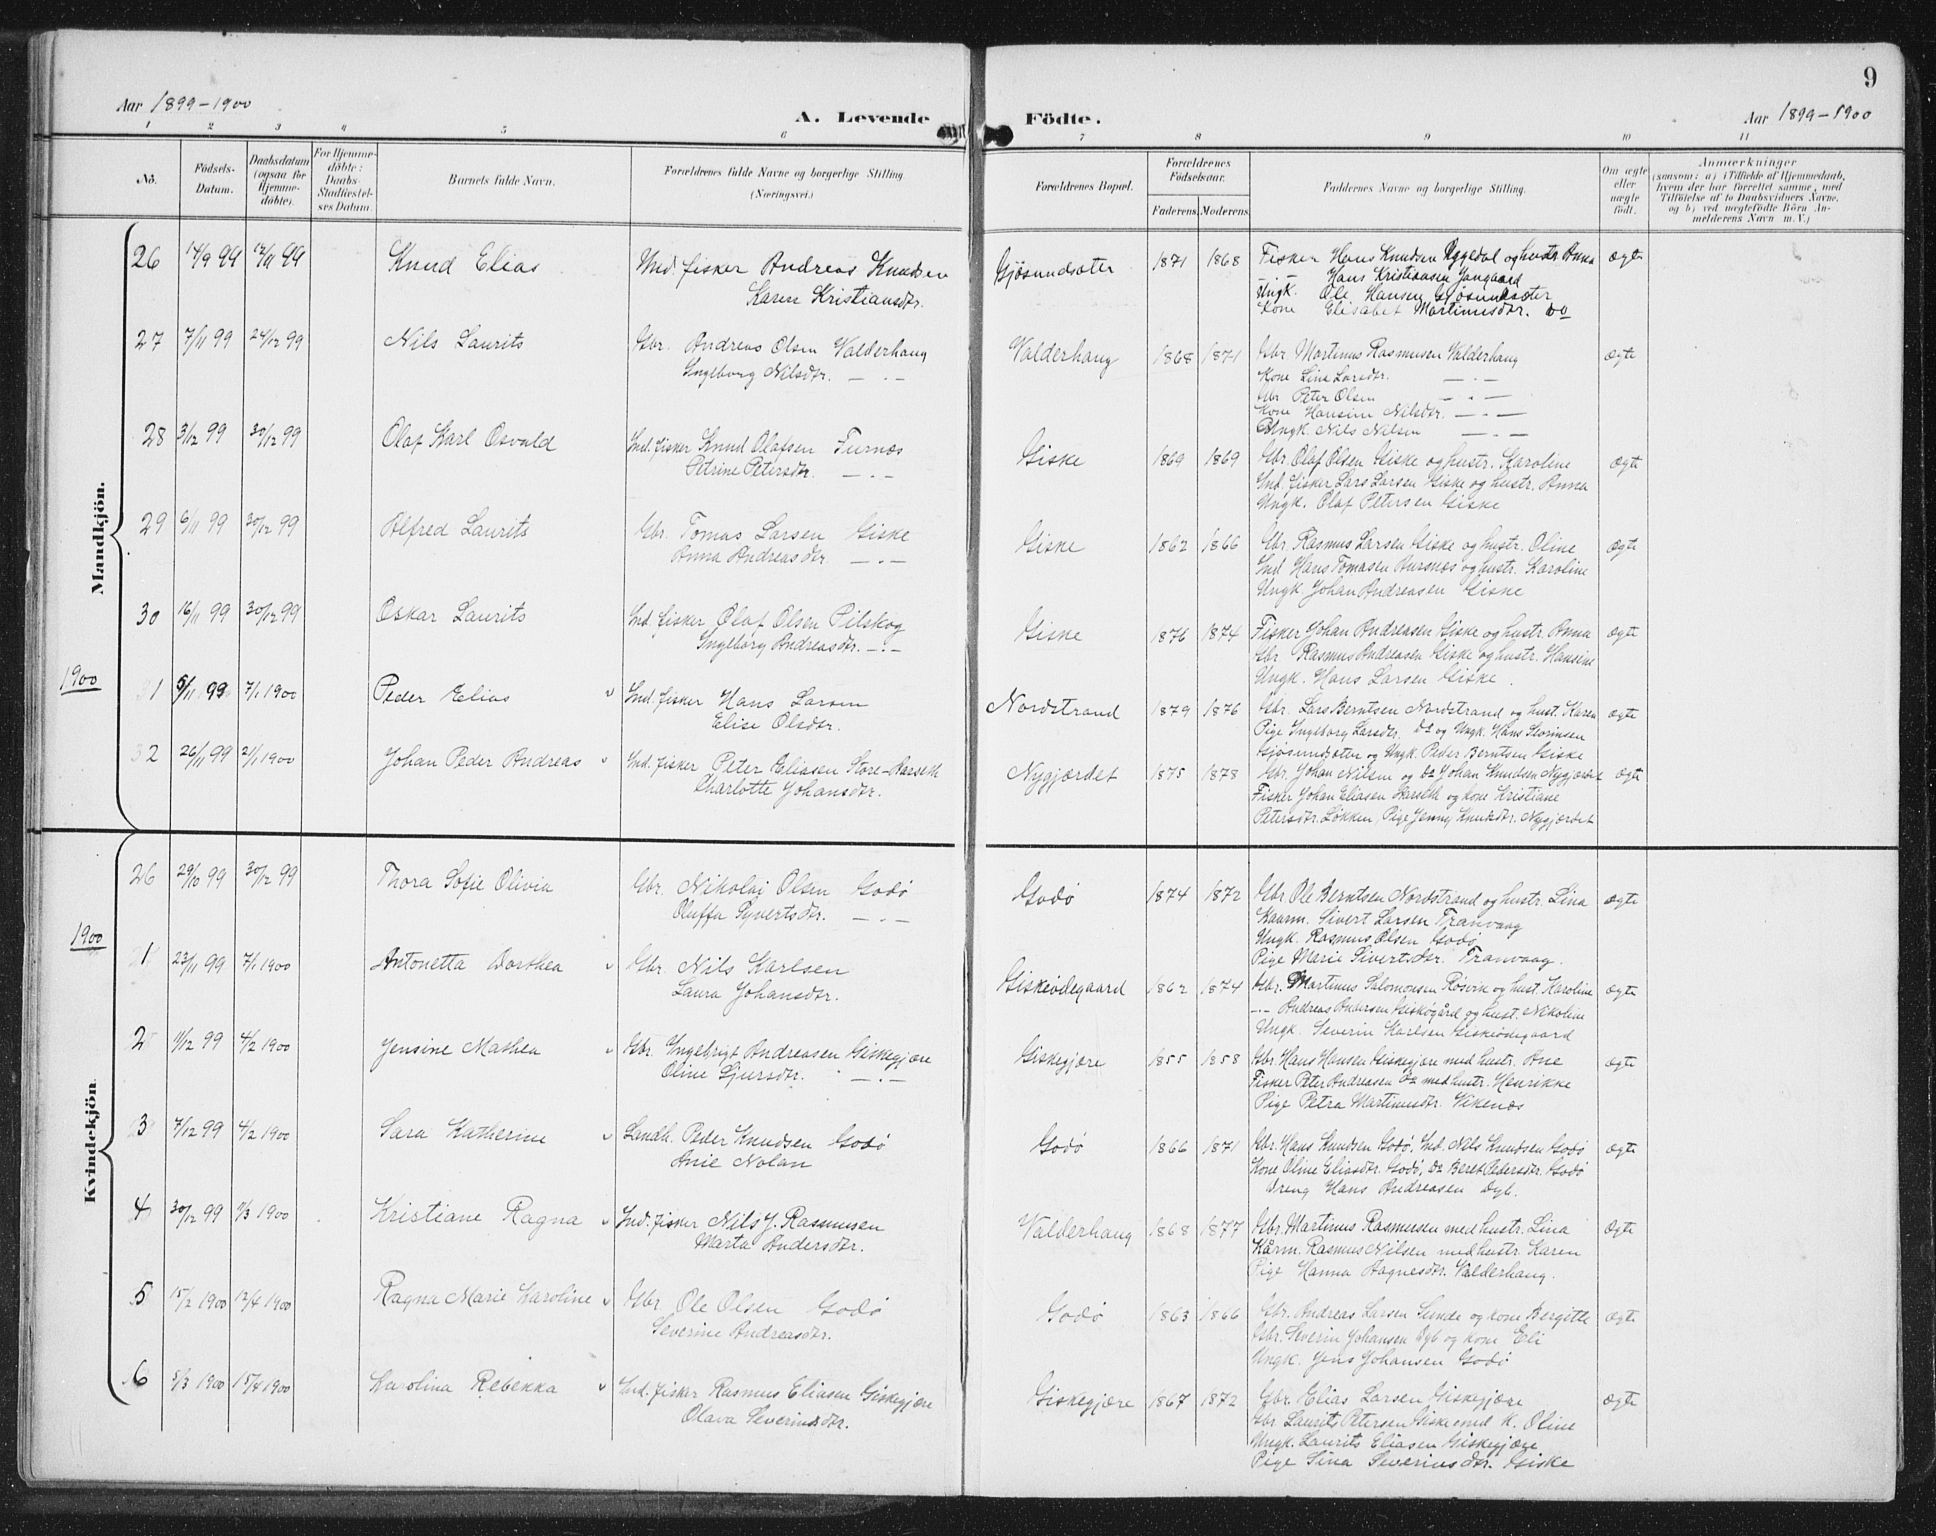 9
Aar 1899-1900 A. Levende Födte. Aar 1899-1900
1 2 3 4 5 6 7 8 9 10 11
No.
Födsels-Datum.
Daabsdatum (ogsaa for Hjemme-döbte).
For Hjemme-döbte: Daabs-Stadfæstel-ses Datum.
Barnets fulde Navn.
Forældrenes fulde Navne og borgerlige Stilling. (Næringsvei.)
Forældrenes Bopæl.
Forældrenes Födselsaar.
Faderens. Moderens.
Faddernes Navne og borgerlige Stilling.
Om ægte eller uægte födt.
Anmærkninger
(saasom: a) i Tilfælde af Hjemmedaab, hvem der har forrettet samme, med Tilföielse af to Daabsvidners Navne, og b) ved uægtefödte Börn An-melderens Navn m. V.)
Mandkjön.
26 14/9 99 12/11 99 Knud Elias Ind. fisker Andreas Knudsen Gjøsundsæter 1871 1868 Fisker Hans Knudsen og hustr Anna ægte
Karen Kristiansdtr. Hans Kristiansen
Ungk. Ole Hansen Gjøsundsæter
Kone Elisabet Martinusdtr. do
27 7/11 99 24/12 99 Nils Laurits Gbr. Andreas Olsen Valderhaug Valderhaug 1868 1871 Gbr Martinus Rasmusen Valderhaug ægte
Ingeborg Nilsdtr. — · — Kone Lina Larsdtr. — · —
Gbr Peter Olsen — · —
Kone Hansine Nilsdtr. — · —
Ungk. Nils Nilsen — · —
28 3/12 99 30/12 99 Olaf Karl Osvald Ind. fisker Knud Olafsen Furnæs Giske 1869 1869 Gbr. Olaf Olsen Giske og hustr. Karoline ægte
Petrine Petersdtr. — · — Ind. fisker Lars Larsen Giske og hustr. Anna
Ungk. Olaf Petersen Giske
29 6/11 99 30/12 99 Alfred Laurits Gbr. Tomas Larsen Giske Giske 1862 1866 Gbr. Rasmus Larsen Giske og hustr. Oline ægte
Anna Andreasdtr. — · — Ind Hans Tomasen Aursnæs og hustr. Karoline
Ungk. Johan Andreasen Giske
30 16/11 99 30/12 99 Oskar Laurits Ind. fisker Olaf Olsen Pilskog Giske 1876 1874 Fisker Johan Andreasen Giske og hustr. Anna ægte
Ingeborg Andreasdtr. — · — Gbr Rasmus Andreasen Giske og hustr. Hansine
Ungk. Hans Larsen Giske.
1900
1 5/11 99 7/1 1900 Peder Elias v Ind. fisker Hans Larsen Nordstrand 1879 1876 Gbr. Lars Berntsen Nordstrand og hust. Karen ægte
Elise Olsdtr. Pige Ingeborg Larsdtr. do og Ungk. Hans
Gjøsundsæter og Ungk. Peder Berntsen Giske
2 26/11 99 21/1 1900 Johan Peder Andreas v Ind. fisker Peter Eliasen Store-Hareth Nygjærdet 1875 1878 Gbr. Johan Nilsen og do Johan Knudsen Nygjærdet ægte
Charlotte Johansdtr. Fisker Johan Eliasen Hareth og kone Kristiane
Petersdtr. Løkken, Pige Jenny Knudsdtr. Nygjærdet
Kvindekjön.
26 29/10 99 30/12 99 Thora Sofie Olivia Gbr. Nikolai Olsen Godø Godø 1874 1872 Gbr Ole Berntsen Nordstrand og hustr. Lina ægte
Oluffa Syvertsdtr. — · — Kaarm. Sivert Larsen Tranvaag
Ungk. Rasmus Olsen Godø
Pige Marie Sivertsdtr. Tranvaag.
1900
1 23/11 99 7/1 1900 Antonetta Dorthea v Gbr. Nils Karlsen Giskeødegaard 1862 1874 Gbr. Martinus Salomonsen Røsvik og hust. Karoline ægte
Laura Johansdtr. -·- Andreas Andersen Giskegård og hust. Nikoline
Ungk. Severin Karlsen Giskeødegaard
2 11/12 99 4/2 1900 Jensine Mathea v Gbr. Ingebrigt Andreasen Giskegjære Giskegjære 1855 1858 Gbr. Hans Hansen Giskegjære med hustr. Ane ægte
Oline Sjursdtr. — · — Fisker Peter Andreasen do med hustr. Henrikke
Pige Petra Martinusdtr. Vikenæs
3 7/12 99 4/2 1900 Sara Katherine v Landh. Peder Knudsen Godø Godø 1866 1871 Gbr. Hans Knudsen Godø, Ind. Nils Knudsen Godø ægte
Anie Nolan Kone Oline Eliasdtr. Godø, do Beret Pedersdtr. Godø
Dreng Hans Andreasen Dyb.
4 30/12 99 11/3 1900 Kristiane Ragna v Ind. fisker Nils J. Rasmusen Valderhaug 1868 1877 Gbr. Martinus Rasmusen med hustr. Lina Ægte
Marta Andersdtr. Kårm. Rasmus Nilsen med hustr. Karen
Pige Hanna Aagnesdtr. Valderhaug.
5 15/2 1900 12/4 1900 Ragna Marie Karoline v Gbr. Ole Olsen Godø Godø 1863 1866 Gbr. Andreas Larsen Sunde og kone Bergitte ægte
Severine Andreasdtr. Gbr. Severin Johansen Dyb og kone Eli
Ungk. Jens Johansen Godø
6 5/3 1900 15/4 1900 Karolina Rebekka v Ind. fisker Rasmus Eliasen Giskegjære Giskegjære 1867 1872 Gbr. Elias Larsen Giskegjære ægte
Olava Severinsdtr. Gbr Laurits Petersen Giske med K. Oline
Ungk. Laurits Eliasen Giskegjære
Pige Sina Severinsdtr. Giske